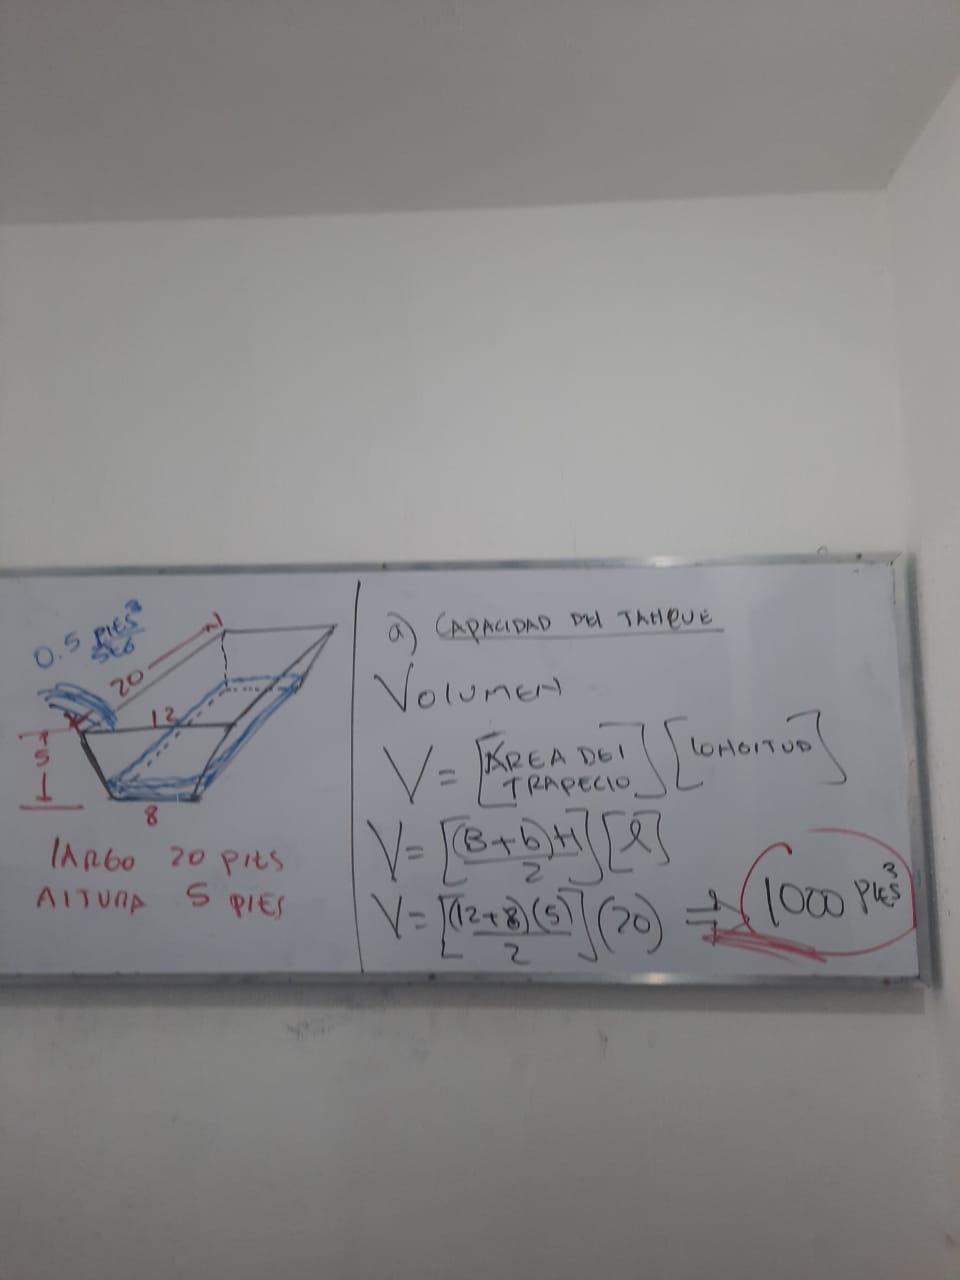 0.5 PIES³
SEG
20
12
5
8
LARGO 20 PIES
ALTURA 5 PIES
a) CAPACIDAD DEL TANQUE
VOLUMEN
V = [ÁREA DEL TRAPECIO] [LONGITUD]
V = [(B+b)H/2] [l]
V = [(12+8)(5)/2] (20) ⇒ 1000 PIES³